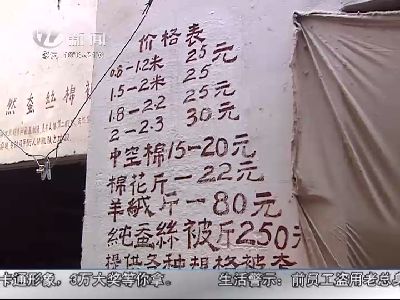 新闻
价格表
0.8-1.2米 25元
1.5-2米 25
1.8-2.2 25元
2-2.3 30元
中空棉15-20元
棉花斤-22元
羊絨斤-80元
純蚕絲被斤250元
提供各种規格被套
然蚕丝棉
卡通形象，3万大奖等你拿。 生活警示：前员工盗用老总身